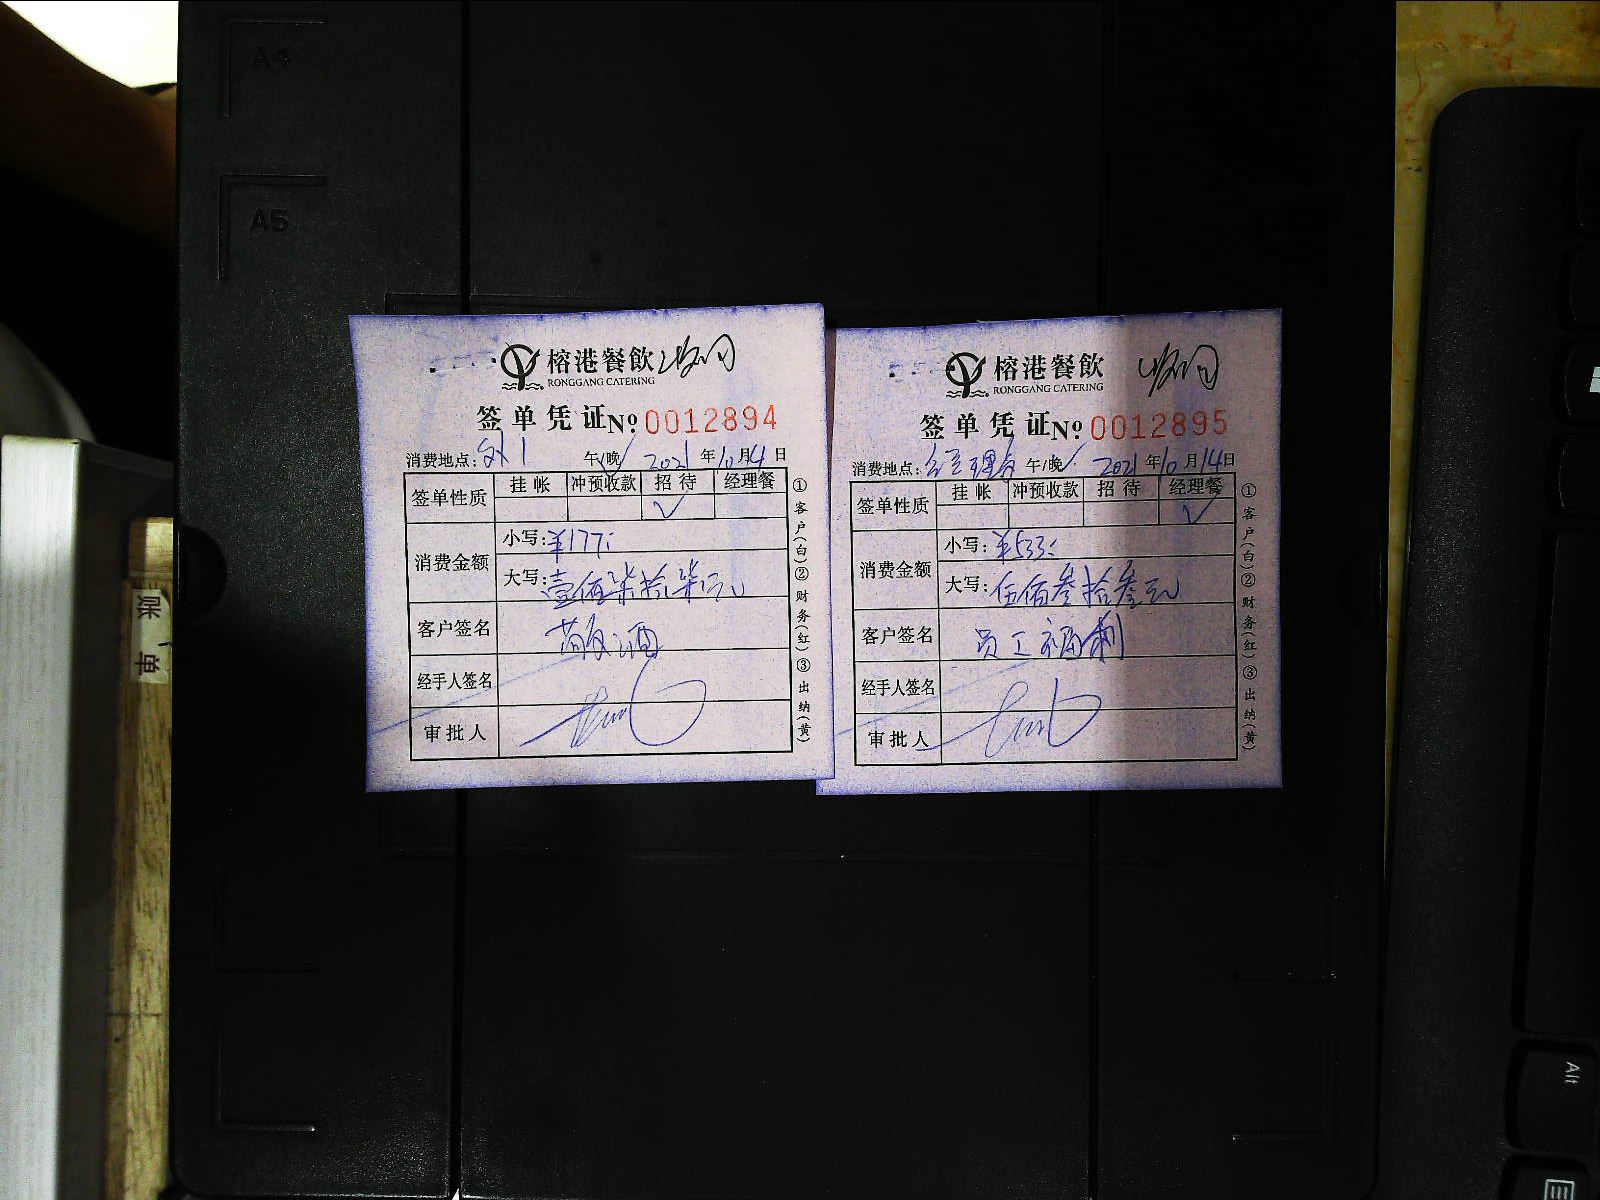 A4
A5
榕港餐飲
RONGGANG CATERING
签单凭证 № 0012894
消费地点: 外1 午/晚 2021年10月14日
签单性质 挂帐 冲预收款 招待 经理餐
✓
消费金额 小写: ¥177
大写: 壹佰柒拾柒元
客户签名 敬酒
经手人签名
审批人
①客户(白)②财务(红)③出纳(黄)
榕港餐飲
RONGGANG CATERING
签单凭证 № 0012895
消费地点: 午/晚 2021年10月14日
签单性质 挂帐 冲预收款 招待 经理餐
✓
消费金额 小写: ¥533
大写: 伍佰叁拾叁元
客户签名 员工福利
经手人签名
审批人
①客户(白)②财务(红)③出纳(黄)
单
Alt